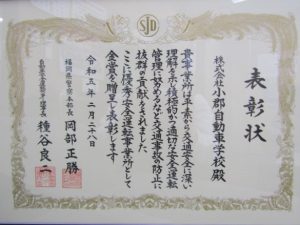 SJD
表彰状
株式会社小郡自動車学校殿
貴事業所は平素から交通安全に深い
理解を示し積極的かつ適切な安全運転
管理に努めるなど交通事故の防止に
抜群の貢献をされました
ここに優秀安全運転事業所として
金賞を贈呈して表彰します
令和五年二月二十八日
福岡県警察本部長 岡部正勝
自動車安全運転センター理事長 種谷良二